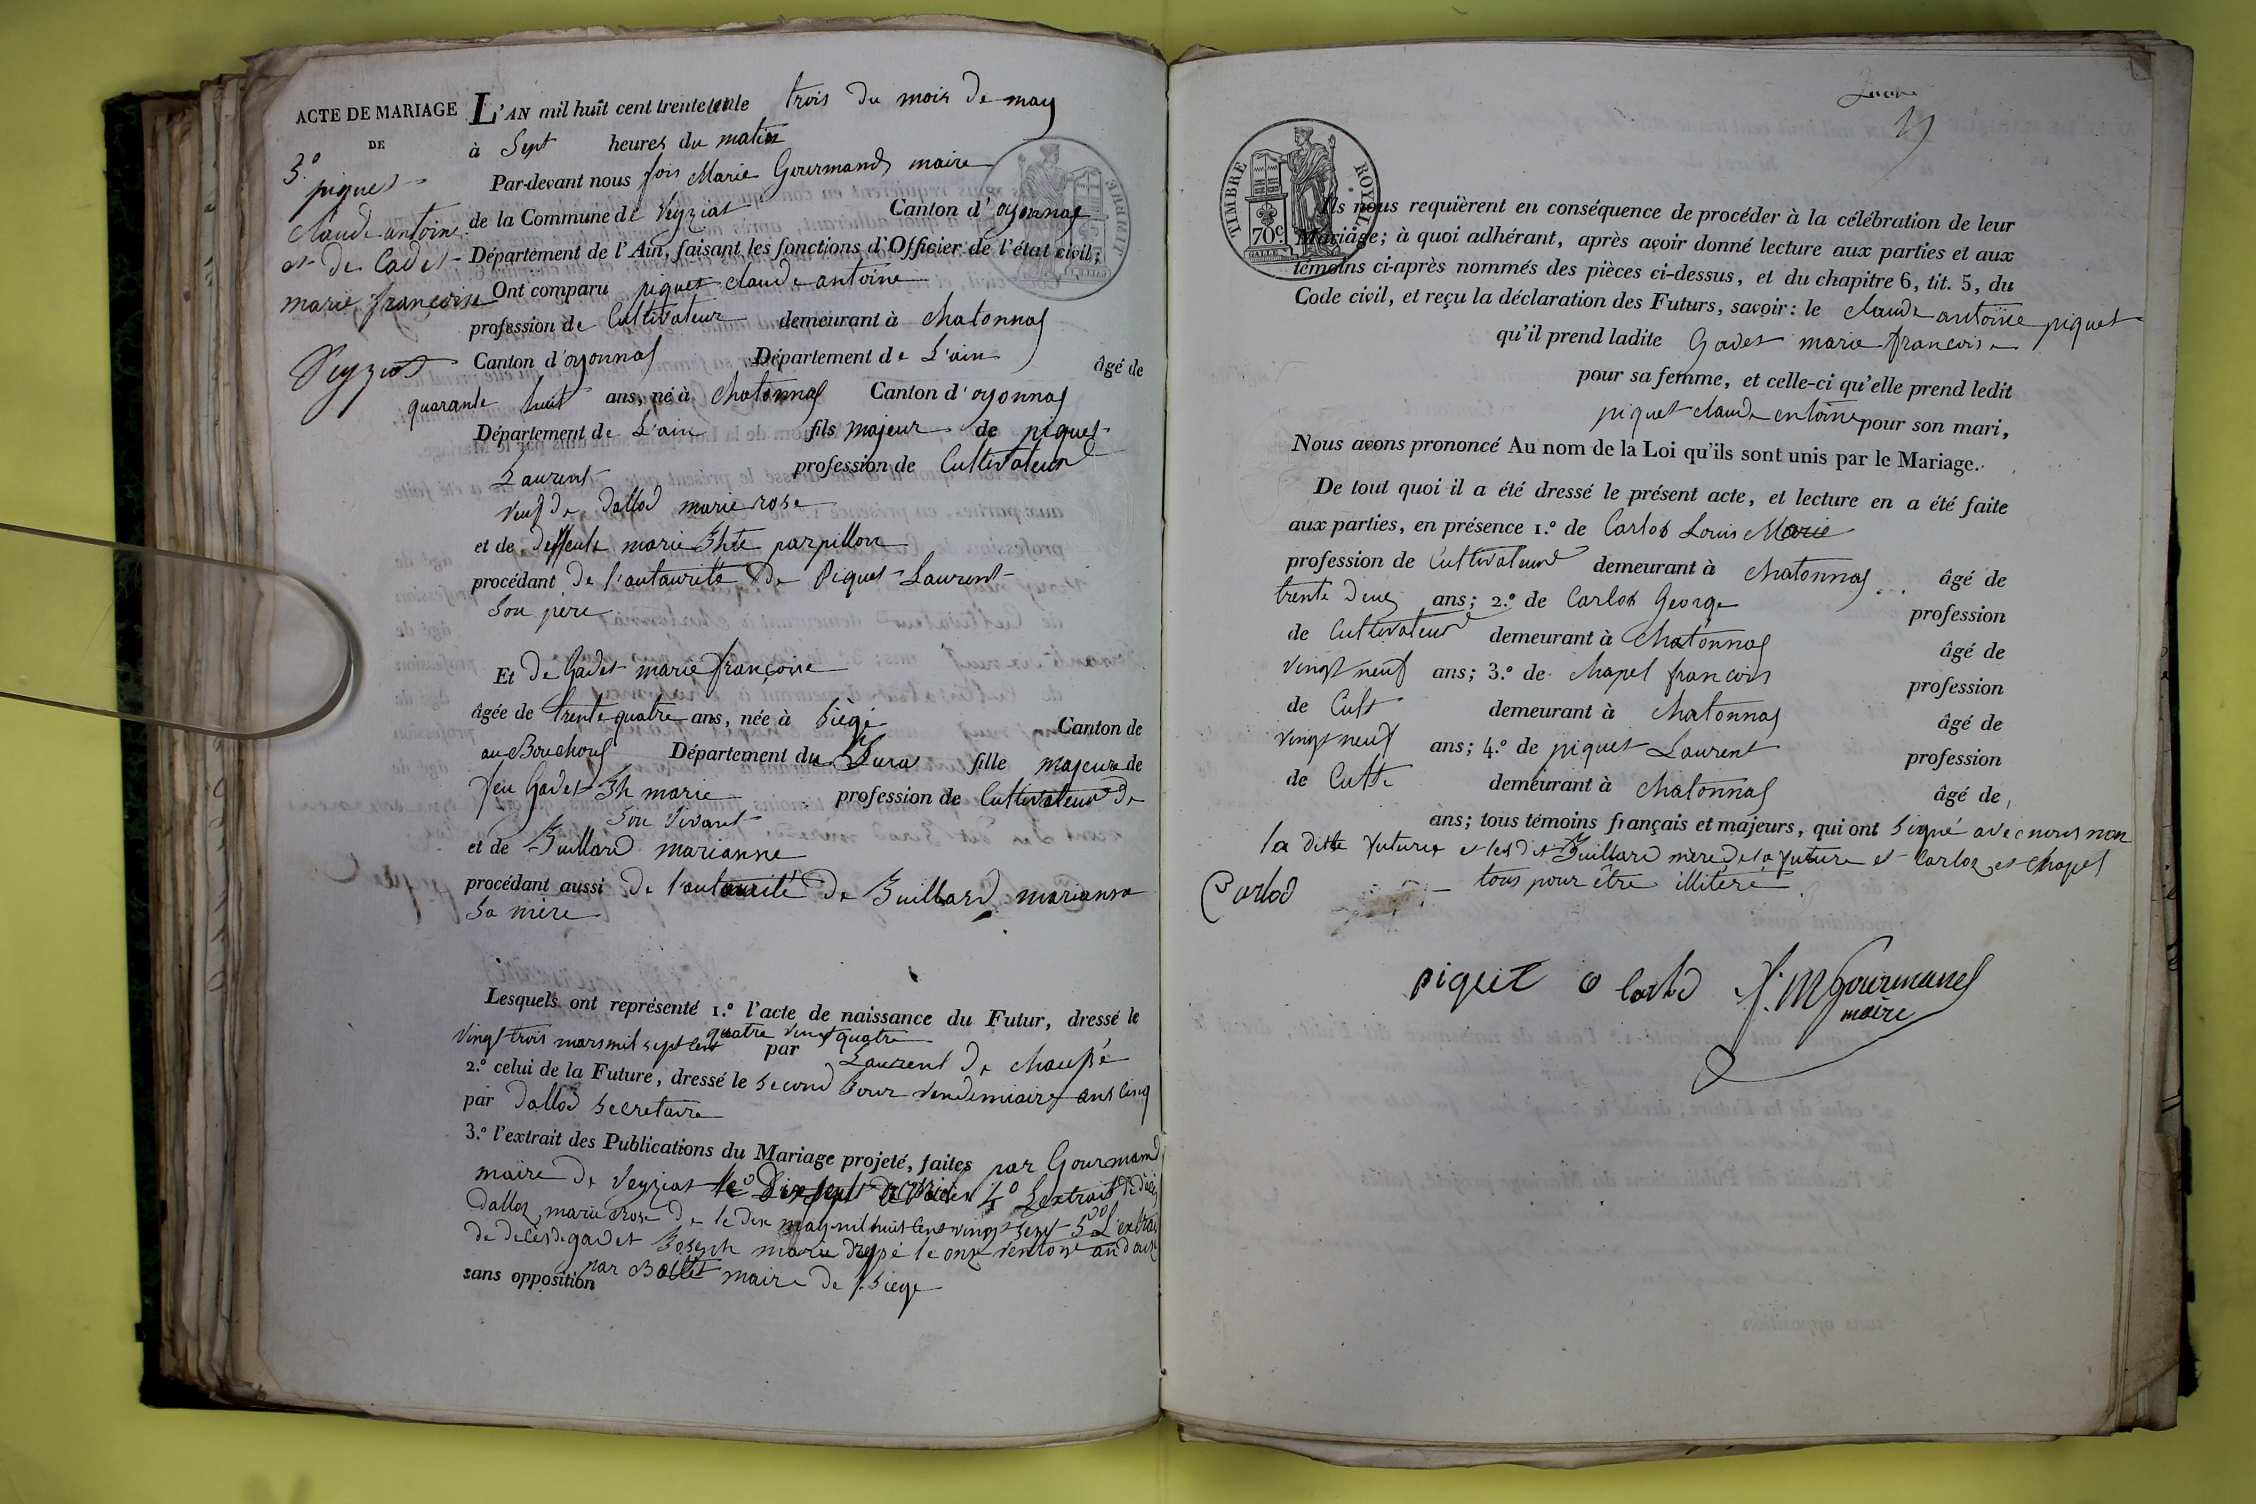 ACTE DE MARIAGE
DE
3.º
piquet
claude antoine
et de Cadet
marie françoise
Veyziat
L'AN mil huit cent trente un le trois du mois de may
à Sept heures du matin
Par-devant nous fois Marie Gourmand maire
de la Commune de Veyziat Canton d'oyonnas
Département de l'Ain, faisant les fonctions d'Officier de l'état civil;
Ont comparu piquet claude antoine
profession de Cultivateur demeurant à chatonnas
Canton d'oyonnas Département de L'ain âgé de
quarante huit ans, né à chatonnas Canton d'oyonnas
Département de L'ain fils majeur de piquet
Laurent profession de Cultivateur
veuf de dallod marie rose
et de deffeute marie Thte parpillon
procédant de l'autaurité de Piquet Laurent
Son père
Et de Gadet marie françoise
âgée de trente quatre ans, née à Siège Canton de
au Bouchoux Département du Jura fille majeur de
feu Gadet Jh marie profession de Cultivateur de
Son vivant
et de Buillard marianne
procédant aussi de l'autaurité de Buillard marianne
Sa mère
Lesquels ont représenté 1.º l'acte de naissance du Futur, dressé le
vingt trois mars mil sept cent quatre vingt quatre par Laurent de chaussé
2.º celui de la Future, dressé le second Jour vendemiaire ans Cinq
par dallod Secretaire
3.º l'extrait des Publications du Mariage projeté, faites par Gourmand
maire de Veyziat 4º Lextrait de déces
dalloz marie Rose de le dix may mil huit cent vingt sept 5º L'extrai
de deces de gadet Joseph marie dressé le onze ventose an douze
par Ballet maire de Siege
sans opposition
TIMBRE ROYAL
70 c
Ils nous requièrent en conséquence de procéder à la célébration de leur
Mariage; à quoi adhérant, après avoir donné lecture aux parties et aux
témoins ci-après nommés des pièces ci-dessus, et du chapitre 6, tit. 5, du
Code civil, et reçu la déclaration des Futurs, savoir: le claude antoine piquet
qu'il prend ladite Gadet marie francoise
pour sa femme, et celle-ci qu'elle prend ledit
piquet claude entoine pour son mari,
Nous avons prononcé Au nom de la Loi qu'ils sont unis par le Mariage.
De tout quoi il a été dressé le présent acte, et lecture en a été faite
aux parties, en présence 1.º de Carlod Louis Marie
profession de Cultivateur demeurant à chatonnas âgé de
trente deux ans; 2.º de Carlod George profession
de Cultivateur demeurant à chatonnas âgé de
vingt neuf ans; 3.º de chapel francois profession
de Cult demeurant à chatonnas âgé de
vingt neuf ans; 4.º de piquet Laurent profession
de Cultr demeurant à chatonnas âgé de
ans; tous témoins français et majeurs, qui ont signé avec nous non
la ditte future et les dit Buillard mère de la future et Carloz et chapel
tous pour être illiteré
Carlod
piqeit G Carlod f: M Gourmand
maire